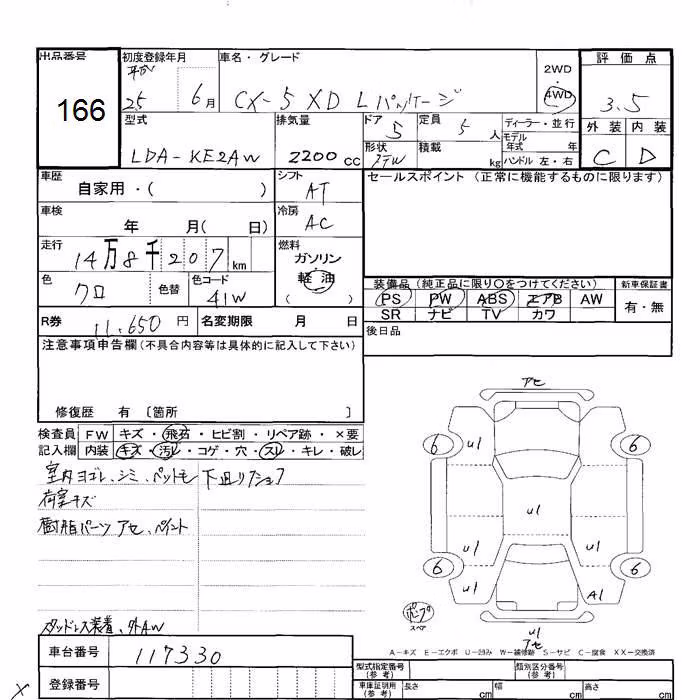 出品番号 初度登録年月 車名・グレード 2WD 評価点
166 平成 25 6月 CX-5 XD Lパッケージ 4WD 3.5
型式 排気量 ドア 定員 ディーラー・並行 外装 内装
LDA-KE2AW 2200cc 5 5人 モデル年式 年 C D
形状 ステW 積載 kg ハンドル 左・右
車歴 自家用・( ) シフト AT セールスポイント(正常に機能するものに限ります)
車検 年 月( 日) 冷房 AC
走行 14万8千207km 燃料 ガソリン 軽油 ( )
色 クロ 色替 色コード 41W
装備品(純正品に限り○をつけてください) 新車保証書
PS PW ABS エアB AW 有・無
SR ナビ TV カワ
R券 11,650円 名変期限 月 日 後日品
注意事項申告欄(不具合内容等は具体的に記入して下さい)
修復歴 有 〔箇所 〕
検査員 FW キズ・飛石・ヒビ割・リペア跡・×要
記入欄 内装 キズ・汚レ・コゲ・穴・スレ・キレ・破レ
室内ヨゴレ、シミ、ペットモ 下廻りクショク
荷室キズ
樹脂パーツ アセ、ペイント
スタッドレス装着、外AW
アセ
6 U1 6
U1
U1 U1
6 U1 A1 6
ポンプ
スペア
U1
アセ
A-キズ E-エクボ U-凹み W-補修跡 S-サビ C-腐食 XX-交換済
車台番号 117330
登録番号
型式指定番号(参考) 類別区分番号(参考)
車庫証明用(参考) 長さ cm 幅 cm 高さ cm
X